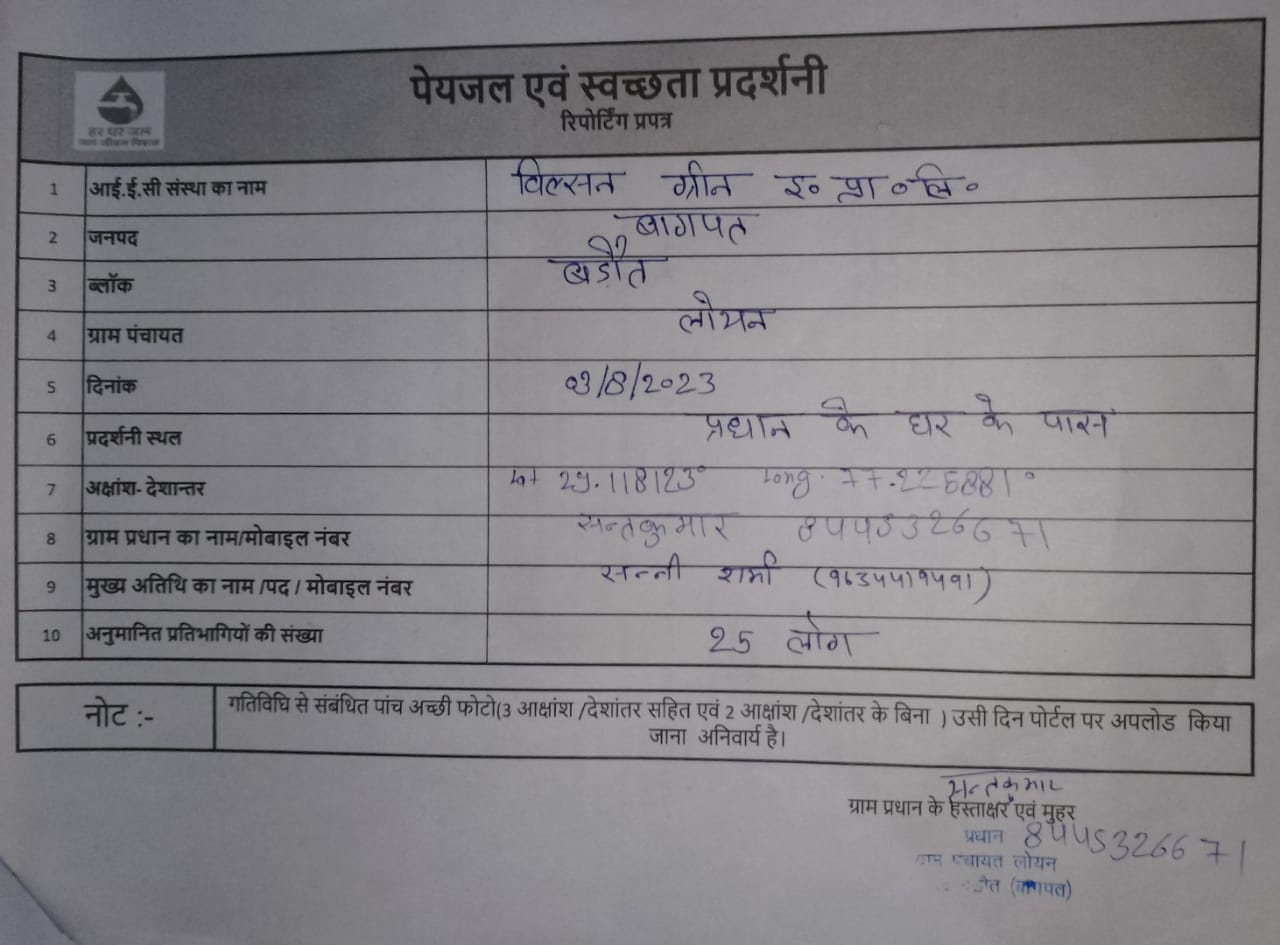 हर घर जल
जल जीवन मिशन
पेयजल एवं स्वच्छता प्रदर्शनी
रिपोर्टिंग प्रपत्र
1 आई.ई.सी संस्था का नाम विल्सन ग्रीन इ० प्रा० लि०
2 जनपद बागपत
3 ब्लॉक बड़ौत
4 ग्राम पंचायत लोयन
5 दिनांक 03/8/2023
6 प्रदर्शनी स्थल प्रधान के घर के पास
7 अक्षांश- देशान्तर Lat 29.118123° Long. 77.226881°
8 ग्राम प्रधान का नाम/मोबाइल नंबर सन्तकुमार 8445326671
9 मुख्य अतिथि का नाम /पद / मोबाइल नंबर सन्नी शर्मा
10 अनुमानित प्रतिभागियों की संख्या 25 लोग
नोट :- गतिविधि से संबंधित पांच अच्छी फोटो(3 आक्षांश /देशांतर सहित एवं 2 आक्षांश /देशांतर के बिना ) उसी दिन पोर्टल पर अपलोड किया
जाना अनिवार्य है।
सन्तकुमार
ग्राम प्रधान के हस्ताक्षर एवं मुहर
प्रधान 8445326671
ग्राम पंचायत लोयन
(बागपत)